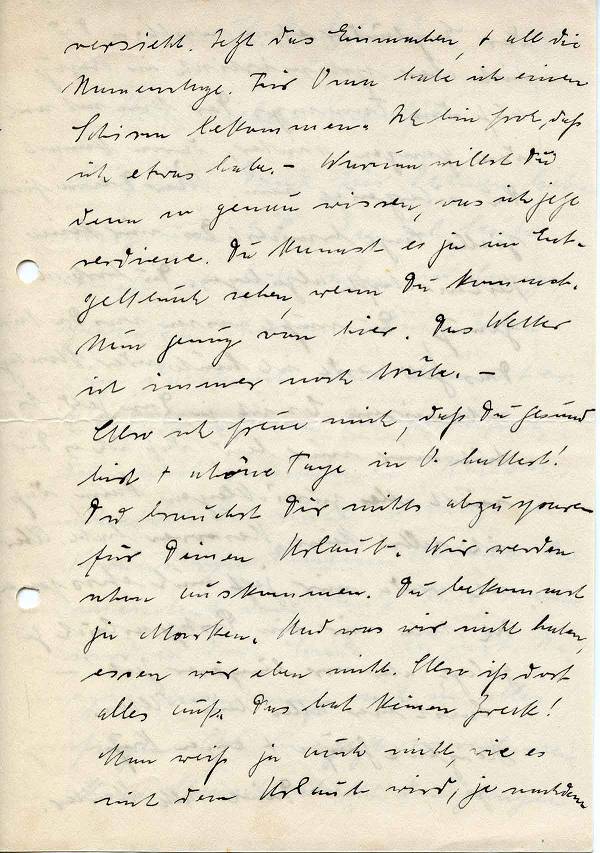 versieht. Jetzt das Einmachen, + all die
Für Oma habe ich einen
Schirm bekommen. Ich bin froh, daß
ich etwas habe. – Warum willst Du
denn so genau wissen, was ich jetzt
verdiene. Du kannst es ja im Ent-
geltbuch sehen, wenn Du kommst.
Nun genug von hier. Das Wetter
ist immer noch trübe. –
Also ich freue mich, daß Du gesund
bist + schöne Tage in O. hattest!
Du brauchst Dir nichts abzusparen
für Deinen Urlaub. Wir werden
schon auskommen. Du bekommst
ja Marken. Und was wir nicht haben,
essen wir eben nicht. Also iß dort
alles auf. Das hat keinen Zweck!
Man weiß ja auch nicht, wie es
mit dem Urlaub wird, je nachdem